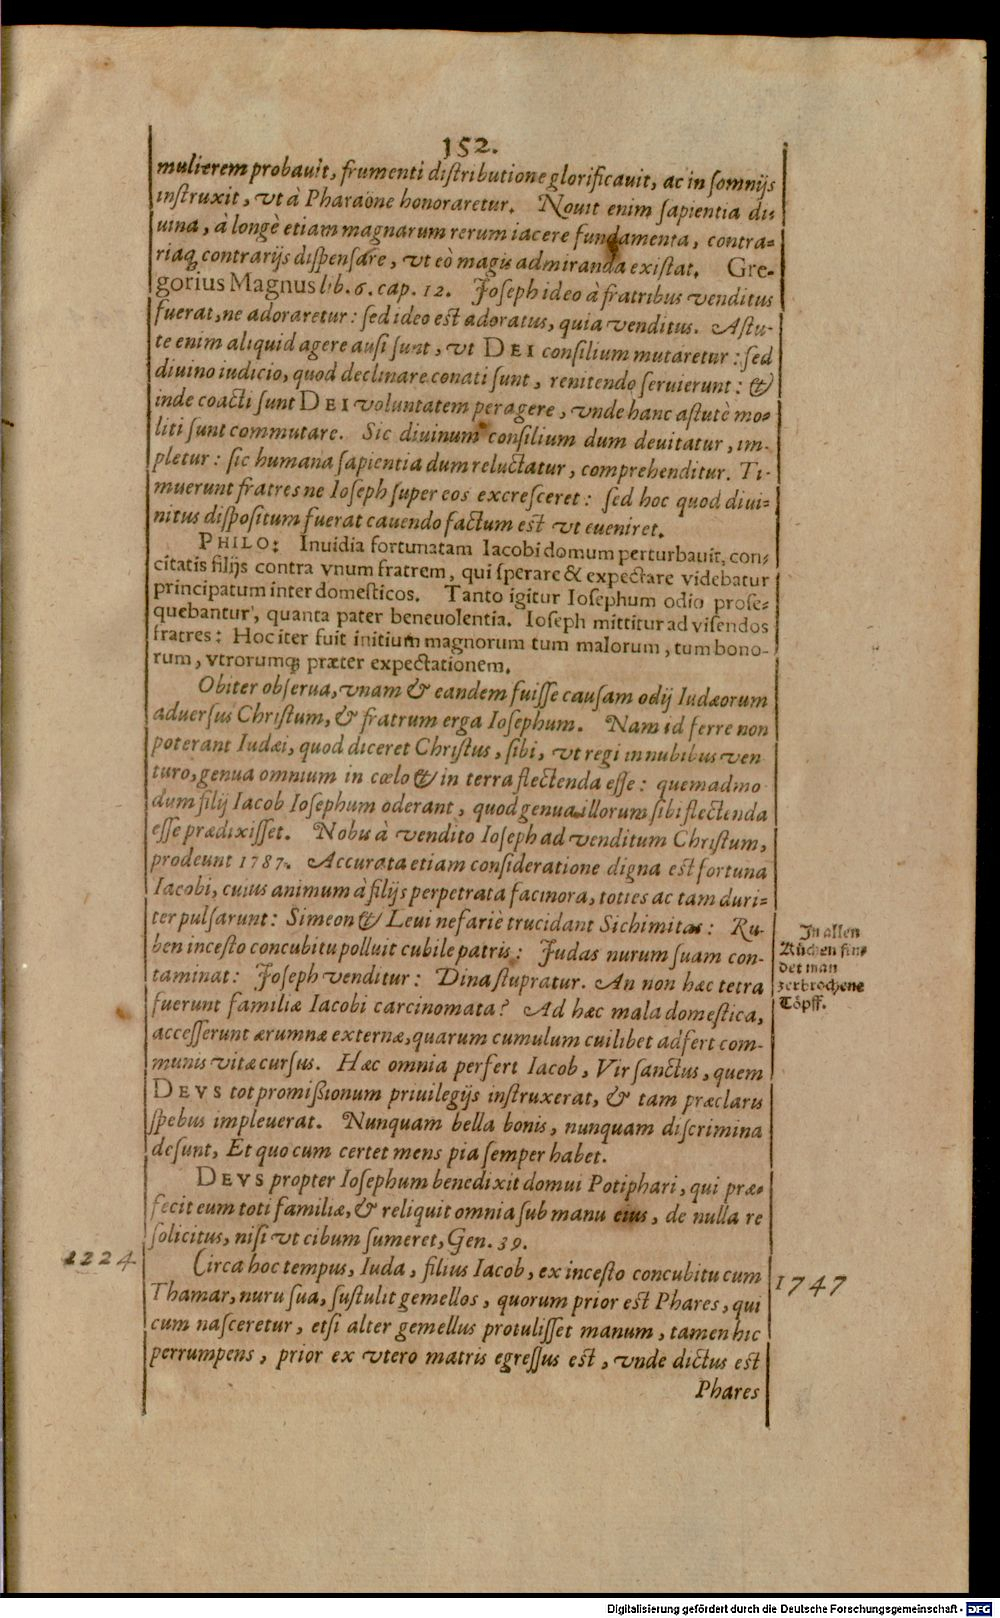 152.
mulierem probauit, frumenti distributione glorificauit, ac in somnijs
instruxit, vt à Pharaone honoraretur. Nouit enim sapientia di-
uina, à longè etiam magnarum rerum iacere fundamenta, contra-
riaq́; contrarijs dispensare, vt eò magis admiranda existat. Gre-
gorius Magnus lib. 6. cap. 12. Joseph ideo à fratribus venditus
fuerat, ne adoraretur: sed ideo est adoratus, quia venditus. Astu-
te enim aliquid agere ausi sunt, vt DEI consilium mutaretur: sed
diuino iudicio, quod declinare conati sunt, renitendo seruierunt: &
inde coacti sunt DEI voluntatem peragere, vnde hanc astutè mo-
liti sunt commutare. Sic diuinum consilium dum deuitatur, im-
pletur: sic humana sapientia dum reluctatur, comprehenditur. Ti-
muerunt fratres ne Ioseph super eos excresceret: sed hoc quod diui-
nitus dispositum fuerat cauendo factum est vt eueniret.
PHILO: Inuidia fortunatam Iacobi domum perturbauit, con-
citatis filijs contra vnum fratrem, qui sperare & expectare videbatur
principatum inter domesticos. Tanto igitur Iosephum odio prose-
quebantur, quanta pater beneuolentia. Ioseph mittitur ad visendos
fratres: Hoc iter fuit initium magnorum tum malorum, tum bono-
rum, vtrorumq; præter expectationem.
Obiter obserua, vnam & eandem fuisse causam odij Iudæorum
aduersus Christum, & fratrum erga Iosephum. Nam id ferre non
poterant Iudæi, quod diceret Christus, sibi, vt regi in nubibus ven
turo, genua omnium in cœlo & in terra flectenda esse: quemadmo
dum filij Iacob Iosephum oderant, quod genua illorum sibi flectenda
esse prædixisset. Nobis à vendito Ioseph ad venditum Christum,
prodeunt 1787. Accurata etiam consideratione digna est fortuna
Iacobi, cuius animum à filijs perpetrata facinora, toties ac tam duri-
ter pulsarunt: Simeon & Leui nefariè trucidant Sichimitas: Ru-
ben incesto concubitu polluit cubile patris: Judas nurum suam con-
taminat: Joseph venditur: Dina stupratur. An non hæc tetra
fuerunt familiæ Iacobi carcinomata? Ad hæc mala domestica,
accesserunt ærumnæ externæ, quarum cumulum cuilibet adfert com-
munis vitæ cursus. Hæc omnia perfert Iacob, Vir sanctus, quem
DEVS tot promißionum priuilegijs instruxerat, & tam præclaris
spebus impleuerat. Nunquam bella bonis, nunquam discrimina
desunt, Et quo cum certet mens pia semper habet.
DEVS propter Iosephum benedixit domui Potiphari, qui præ-
fecit eum toti familiæ, & reliquit omnia sub manu eius, de nulla re
solicitus, nisi vt cibum sumeret, Gen. 39.
Circa hoc tempus, Iuda, filius Iacob, ex incesto concubitu cum
Thamar, nuru sua, sustulit gemellos, quorum prior est Phares, qui
cum nasceretur, etsi alter gemellus protulisset manum, tamen hic
perrumpens, prior ex vtero matris egressus est, vnde dictus est
Phares
In allen
Küchen fin-
det man
zerbrochene
Töpff.
2224
1747
Digitalisierung gefördert durch die Deutsche Forschungsgemeinschaft - DFG